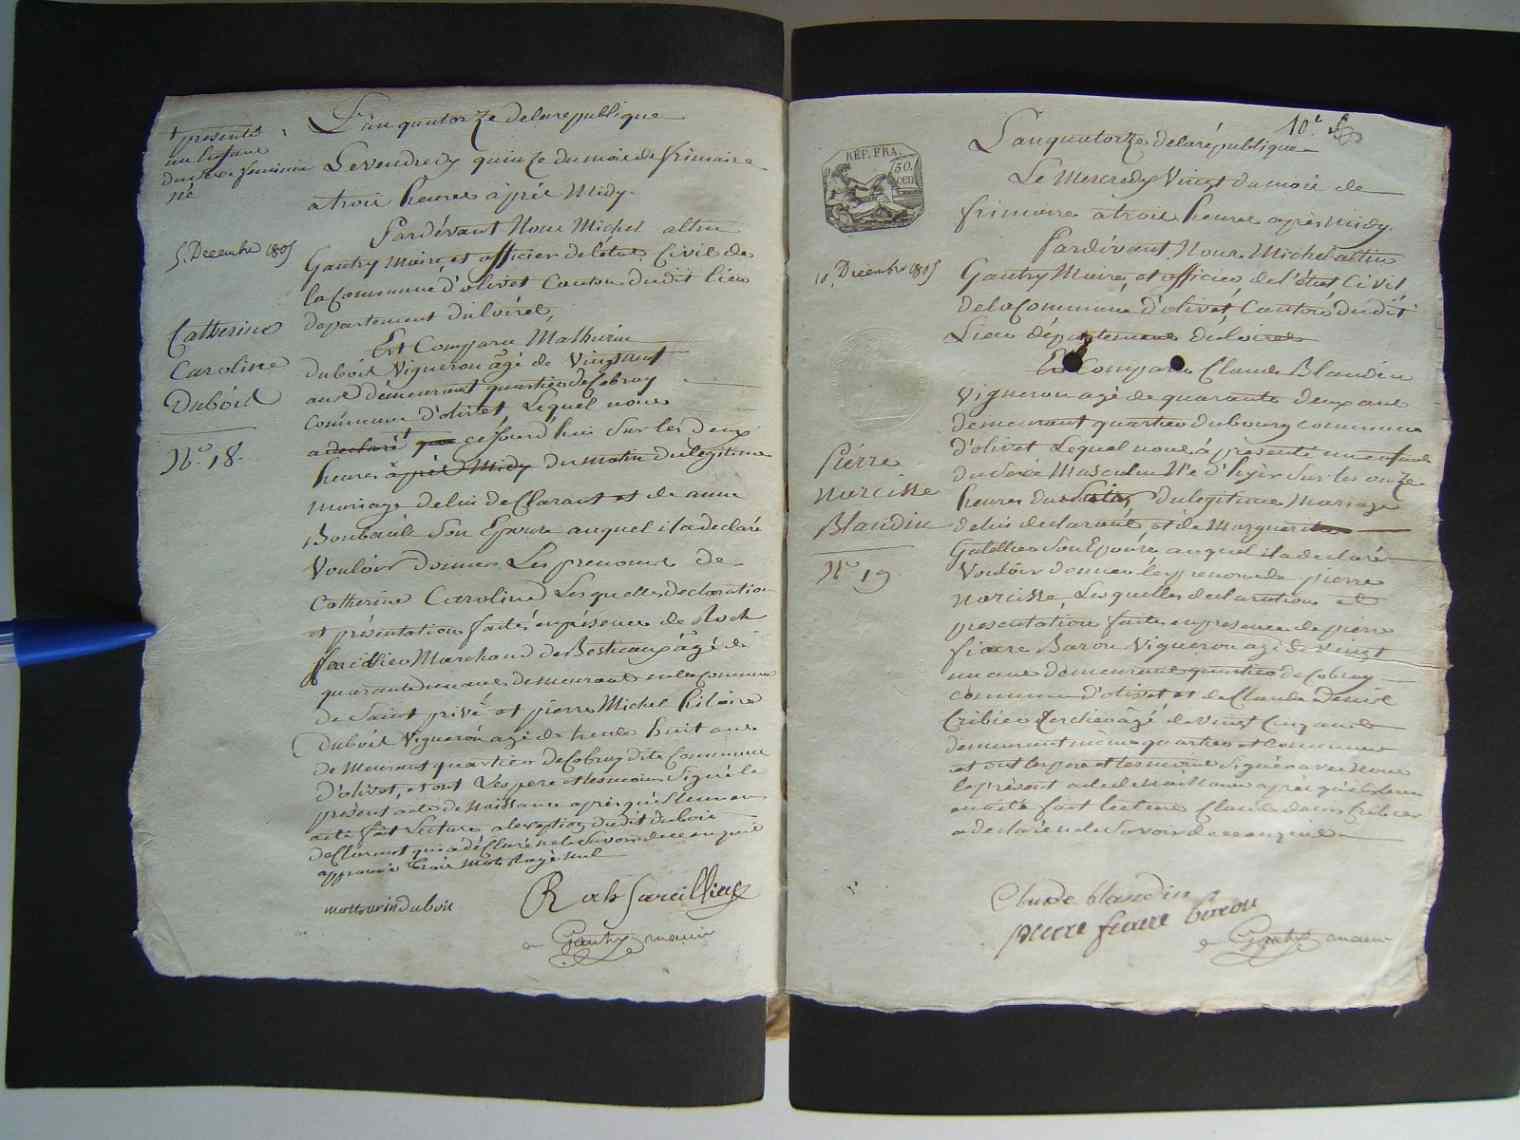 L'an quatorze de la republique
† presenté
un enfant
du sexe feminin
né
Le vendredy quinze du mois de frimaire
a trois heures après Midy.
5. Decembre 1805
Pardévant Nous Michel
Gautry Maire et officier de l'état Civil de
la Commune d'olivet Canton dudit lieu
departement du loiret,
Catherine
Caroline
Duboil
N.º 18.
Est Comparu Mathurin
duboil Vigneron âgé de Vingt neuf
ans demeurant quartier de Cobray
commune d'olivet, Lequel nous
a declaré † que cejourd'hui sur les deux
heures après Midy du matin du legitime
mariage de lui de Clarant et de anne
son Epouse auquel il a declaré
Vouloir donner Les prenoms de
Catherine Caroline Lesquelles declaration
et présentation faites en présence de Roch
Marchand de Bestieaux âgé de
quarante ans demeurant en la Commune
de Saint privé et pierre Michel hilaire
duboil Vigneron âgé de trente huit ans
de Meurant quartier de Cobray dite Commune
d'olivet, et ont Les pere et temoins Signé le
présent acte de Naissance après qu'il leur en
a eté fait Lecture a lexception dudit duboil
declarant qui a déclaré ne le Savoir de ce enquis
approuvé trois Mots Rayé nul
mathurin duboil
Roch
Gautry maire
10.e
REP. FRA.
50.
cen
L'an quatorze de la république
Le Mercredy Vingt du mois de
frimaire a trois heures après midy.
10. Décembre 1805
Pardévant Nous Michel
Gautry Maire, et officier de l'état Civil
de la Commune d'olivet Canton dudit
Lieu département du loiret
Est Comparu Claude Blandin
Vigneron âgé de quarante deux ans
demeurant quartier du bourg commune
d'olivet Lequel nous a presenté un enfant
du Sexe Masculin Né d'hyèr Sur les onze
heures du du legitime Mariage
de lui declarant et de Marguerite
Pierre
Narcisse
Blandin
N.º 19
son Epouse auquel il a declaré
Vouloir donner les prenoms de pierre
narcisse, Lesquelles declaration et
presentation faites en presence de pierre
fiacre Baron Vigneron âgé de Vingt
un ans demeurant quartier de Cobray
commune d'olivet et de Claude Denis
Cribier âgé de vingt cinq ans
demeurant même quartier et commune
et ont les pere et temoins Signé avec Nous
le présent acte de Naissance après qu'il leur
en a été fait lecture Claude denis Cribier
a declaré ne le Savoir de ce enquis
Claude blandin
pierre fiacre baron
Gautry maire